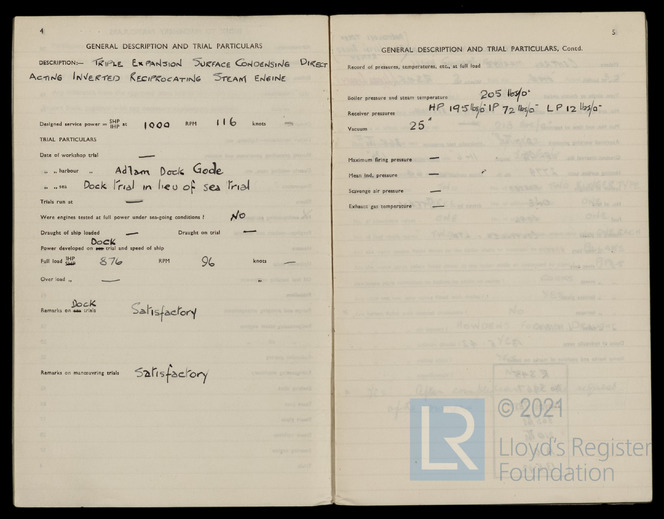 4
GENERAL DESCRIPTION AND TRIAL PARTICULARS
DESCRIPTION:- TRIPLE EXPANSION SURFACE CONDENSING DIRECT
ACTING INVERTED RECIPROCATING STEAM ENGINE
Designed service power — SHP IHP at 1000 RPM 116 knots —
TRIAL PARTICULARS
Date of workshop trial —
" " harbour " Adlam Dock Goole
" " sea " Dock trial in lieu of sea trial
Trials run at —
Were engines tested at full power under sea-going conditions ? NO
Draught of ship loaded — Draught on trial —
Dock
Power developed on sea trial and speed of ship
Full load IHP 876 RPM 96 knots —
Over load " — "
Dock
Remarks on sea trials Satisfactory
Remarks on manœuvring trials Satisfactory
5
GENERAL DESCRIPTION AND TRIAL PARTICULARS, Contd.
Record of pressures, temperatures, etc., at full load
Boiler pressure and steam temperature 205 lbs/□"
Receiver pressures HP 195 lbs/□" IP 72 lbs/□" LP 12 lbs/□"
Vacuum 25"
Maximum firing pressure —
Mean ind. pressure —
Scavenge air pressure —
Exhaust gas temperature —
© 2021
LR
Lloyd's Register
Foundation